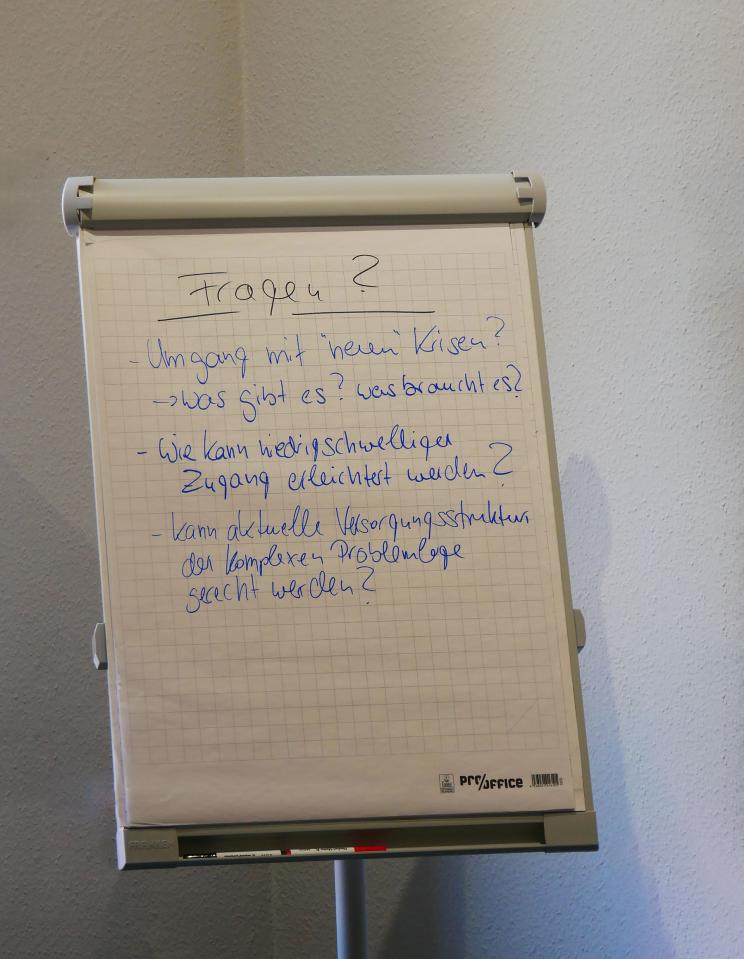 Fragen ?
- Umgang mit "neuen" Krisen?
→ was gibt es? was braucht es?
- Wie kann niedrigschwelliger
Zugang erleichtert werden?
- kann aktuelle Versorgungsstruktur
der komplexen Problemlage
gerecht werden?
PRO/OFFICE
FRANKEN